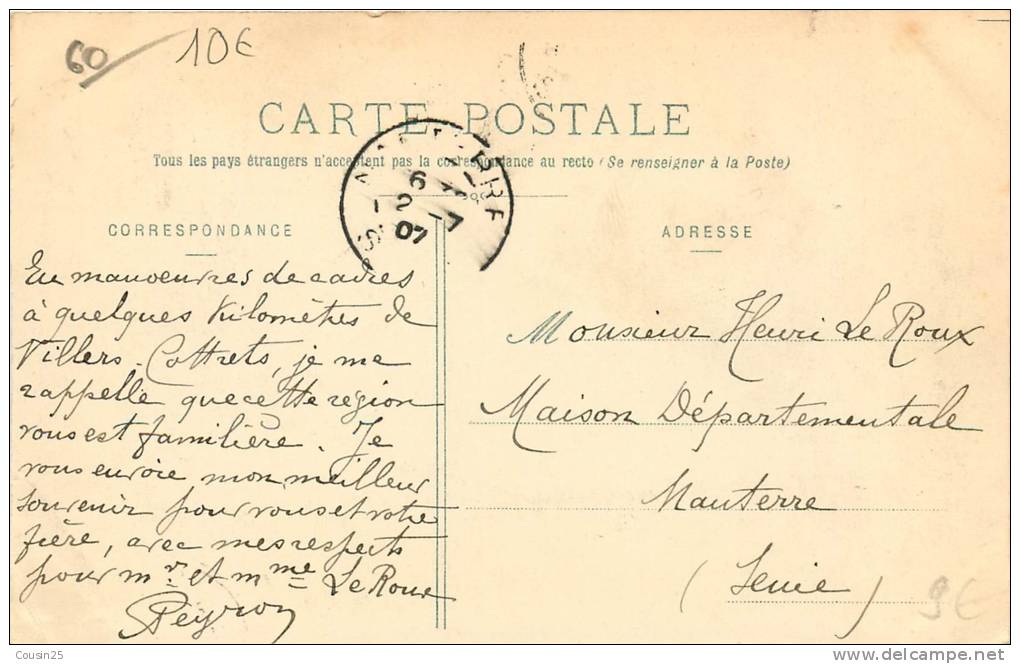 60
10€
CARTE POSTALE
Tous les pays étrangers n'acceptent pas la correspondance au recto (Se renseigner à la Poste)
6
12 -7
07
CORRESPONDANCE
En manoeuvres de cadres
à quelques Kilomètres de
Villers-Cottrets, je me
rappelle que cette région
vous est familière. Je
vous envoie mon meilleur
souvenir pour vous et votre
frère, avec mes respects
pour mr et mme Le Roux
Peyron
ADRESSE
Monsieur Henri Le Roux
Maison Départementale
Nanterre
(Seine)
9€
Cousin25
www.delcampe.net